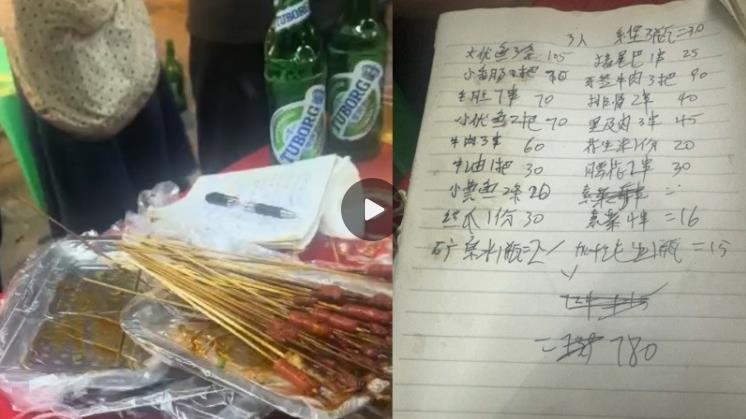 TUBORG
TUBORG
3人 乐堡3瓶=30
大优鱼3条 105 猪尾巴1串 25
小香肠2把 牙签牛肉3把 90
毛肚7串 70 排骨2串 40
小优鱼2把 70 里及肉3串 45
牛肉3串 60 花生米1份 20
牛油1把 30 腰花2串 30
小黄鱼2条 20 =
丝瓜1份 30 素菜4串=16
矿泉水1瓶=2 加化生1瓶=15
780